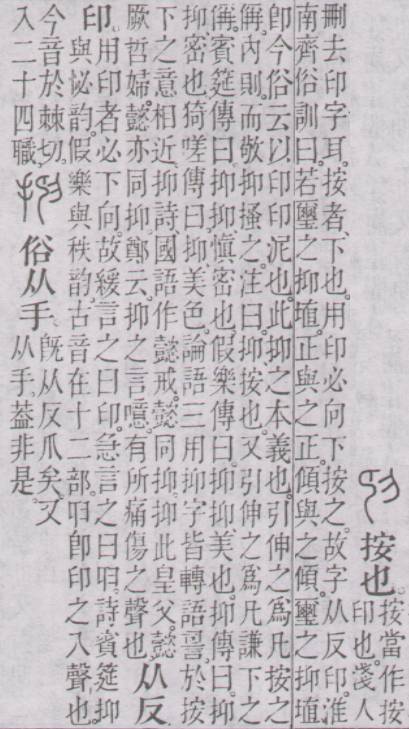 按也。按當作按
印也。淺人
刪去印字耳。按者、下也。用印必向下按之。故字从反印。淮
南齊俗訓曰。若璽之抑埴。正與之正。傾與之傾。璽之抑埴
卽今俗云以印印泥也。此抑之本義也。引伸之爲凡按之
偁。內則。而敬抑搔之。注曰。抑按也。又引伸之爲凡謙下之
偁。賓筵傳曰。抑抑愼密也。假樂傳曰。抑抑美也。抑傳曰。抑
抑密也。猗嗟傳曰。抑美色。論語三用抑字。皆轉語䛐。於按
下之意相近。抑詩、國語作懿戒。懿同抑。抑此皇父。懿
厥哲婦。懿亦同抑。鄭云。抑之言噫。有所痛傷之聲也。从反
印。用印者必下向。故緩言之曰印。急言之曰𠨍。詩賓筵抑
與怭韵。假樂與秩韵。古音在十二部。𠨍卽印之入聲也。
今音於棘切。
入二十四職。
俗从手。旣从反爪矣。又
从手。葢非是